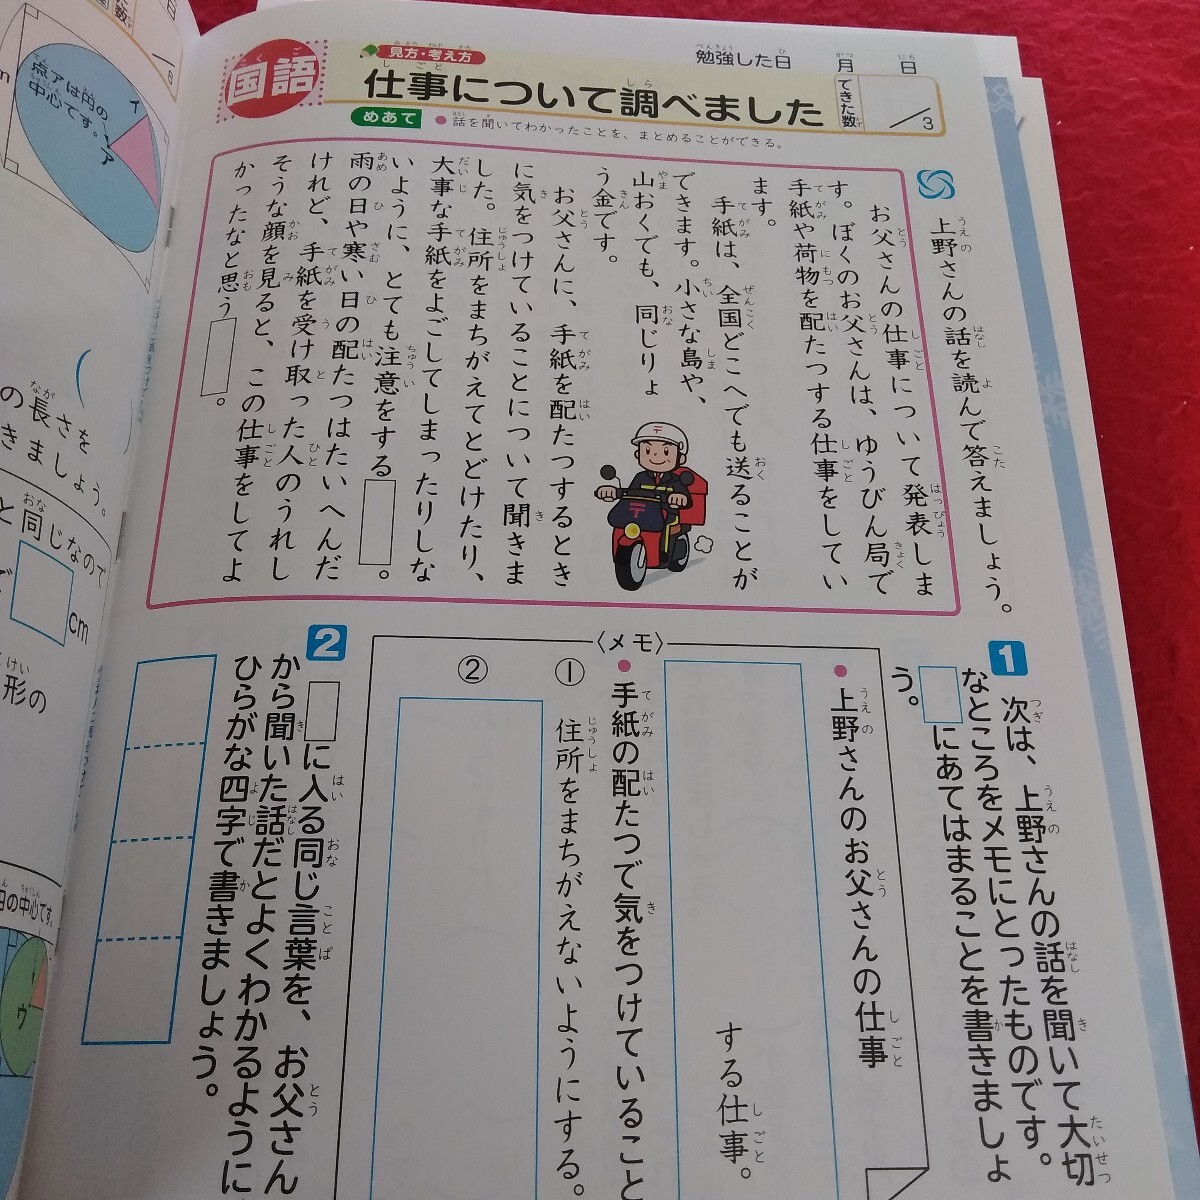 国語
見方・考え方
仕事について調べました
勉強した日 月 日
できた数
/3
めあて
●話を聞いてわかったことを、まとめることができる。
上野さんの話を読んで答えましょう。
お父さんの仕事について発表しま
す。ぼくのお父さんは、ゆうびん局で
手紙や荷物を配たつする仕事をしてい
ます。
手紙は、全国どこへでも送ることが
できます。小さな島や、
山おくでも、同じりょ
う金です。
お父さんに、手紙を配たつするとき
に気をつけていることについて聞きま
した。住所をまちがえてとどけたり、
大事な手紙をよごしてしまったりしな
いように、とても注意をする
。
雨の日や寒い日の配たつはたいへんだ
けれど、手紙を受け取った人のうれし
そうな顔を見ると、この仕事をしてよ
かったなと思う
。
1
次は、上野さんの話を聞いて大切
なところをメモにとったものです。
にあてはまることを書きましょ
う。
〈メモ〉
●上野さんのお父さんの仕事
する仕事。
●手紙の配たつで気をつけていること
①住所をまちがえないようにする。
②
2
に入る同じ言葉を、お父さん
から聞いた話だとよくわかるように
ひらがな四字で書きましょう。
点アは円の
中心です。
イ
ア
の長さを
きましょう。
と同じなので
cm
形の
の中心です。
ウ